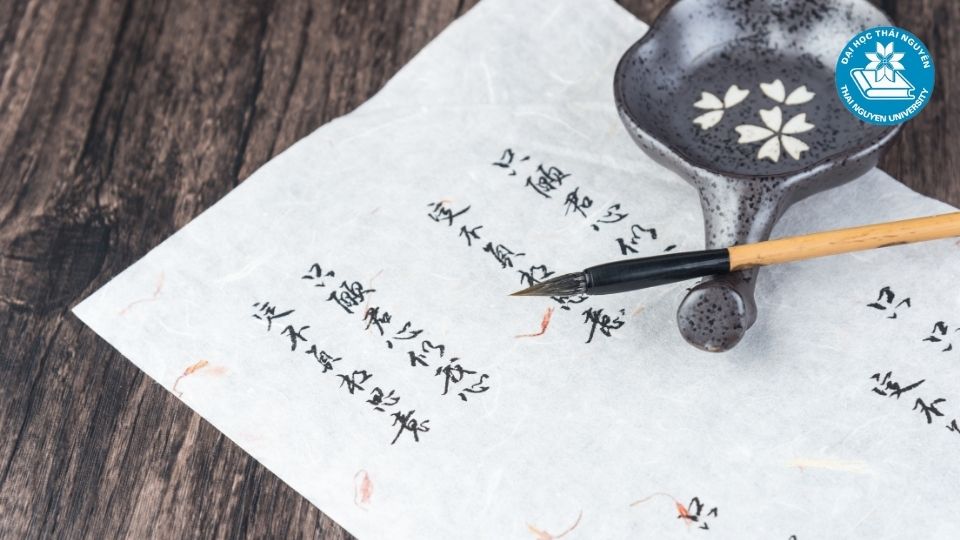 ĐẠI HỌC THÁI NGUYÊN
THAI NGUYEN UNIVERSITY
只願君心似
定不負相思意
只願君心似我心
定不負相思意
只
只
定不